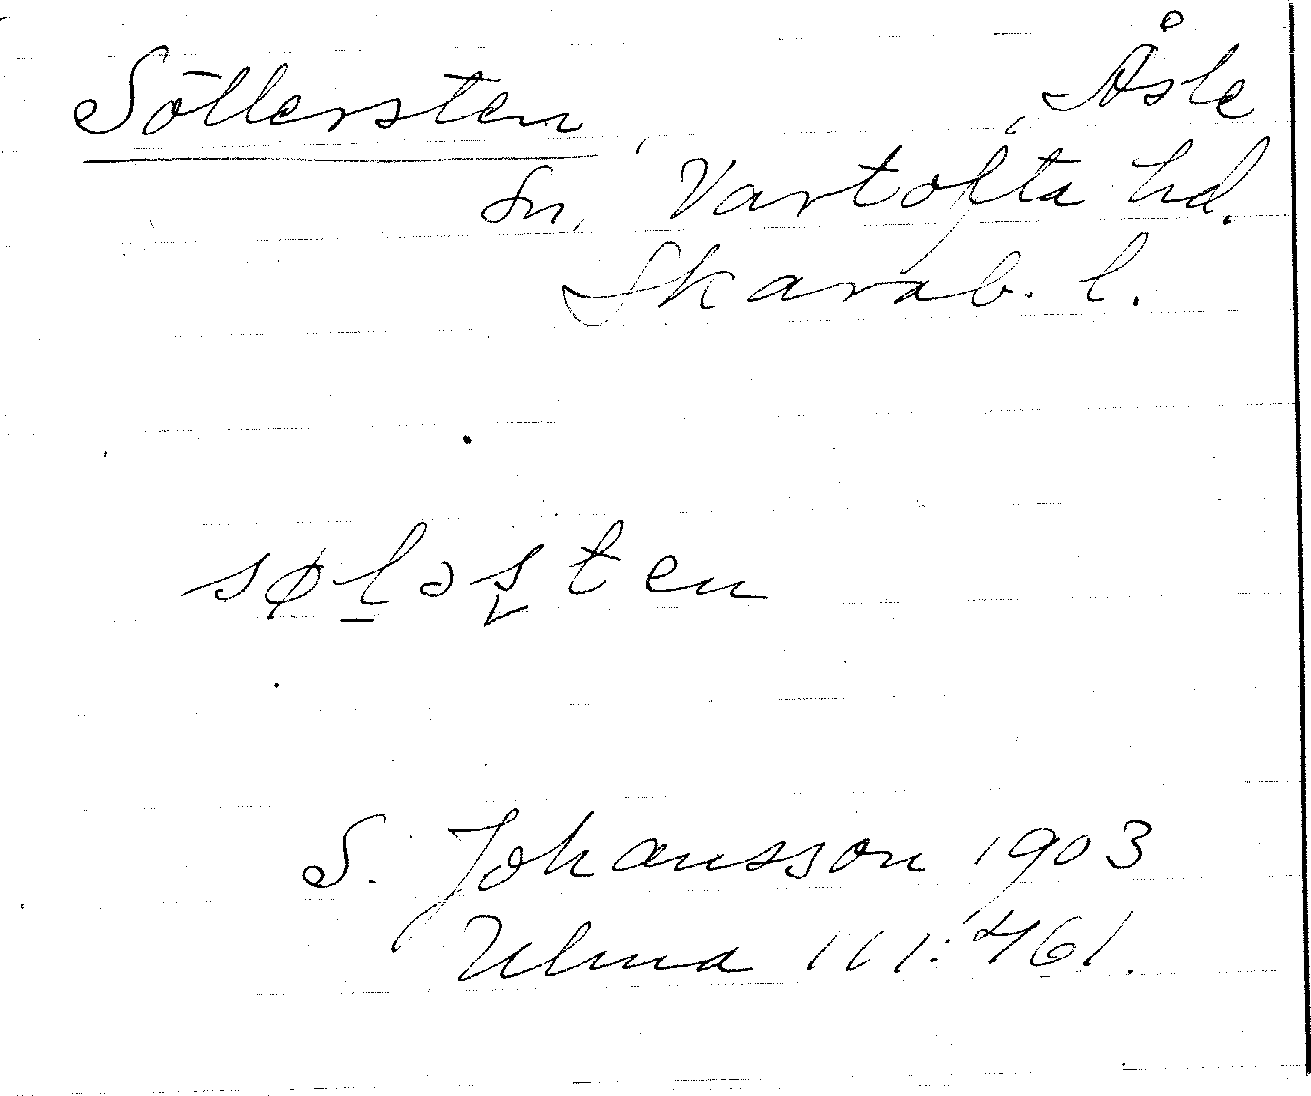 Söllersten, Åsle
sn, Vartofta hd.
Skarab. l.
søl̲əʂten
S. Johansson 1903
Ulma 111:461.